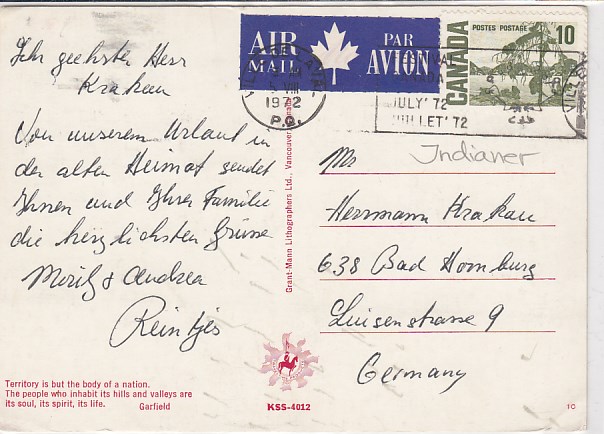 Ihr geehrter Herr
Krakau
Von unserem Urlaub in
der alten Heimat sendet
Ihnen und Ihrer Familie
die herzlichsten Grüsse
Moritz & Andrea
Reintjes
AIR MAIL
PAR AVION
CANADA
POSTES POSTAGE
10
VIII
1972
P.Q.
JULY '72
JUILLET '72
Indianer
Mr
Herrmann Krakau
638 Bad Homburg
Luisenstrasse 9
Germany
Grant-Mann Lithographers Ltd., Vancouver, Canada
Territory is but the body of a nation.
The people who inhabit its hills and valleys are
its soul, its spirit, its life. Garfield
KSS-4012
10